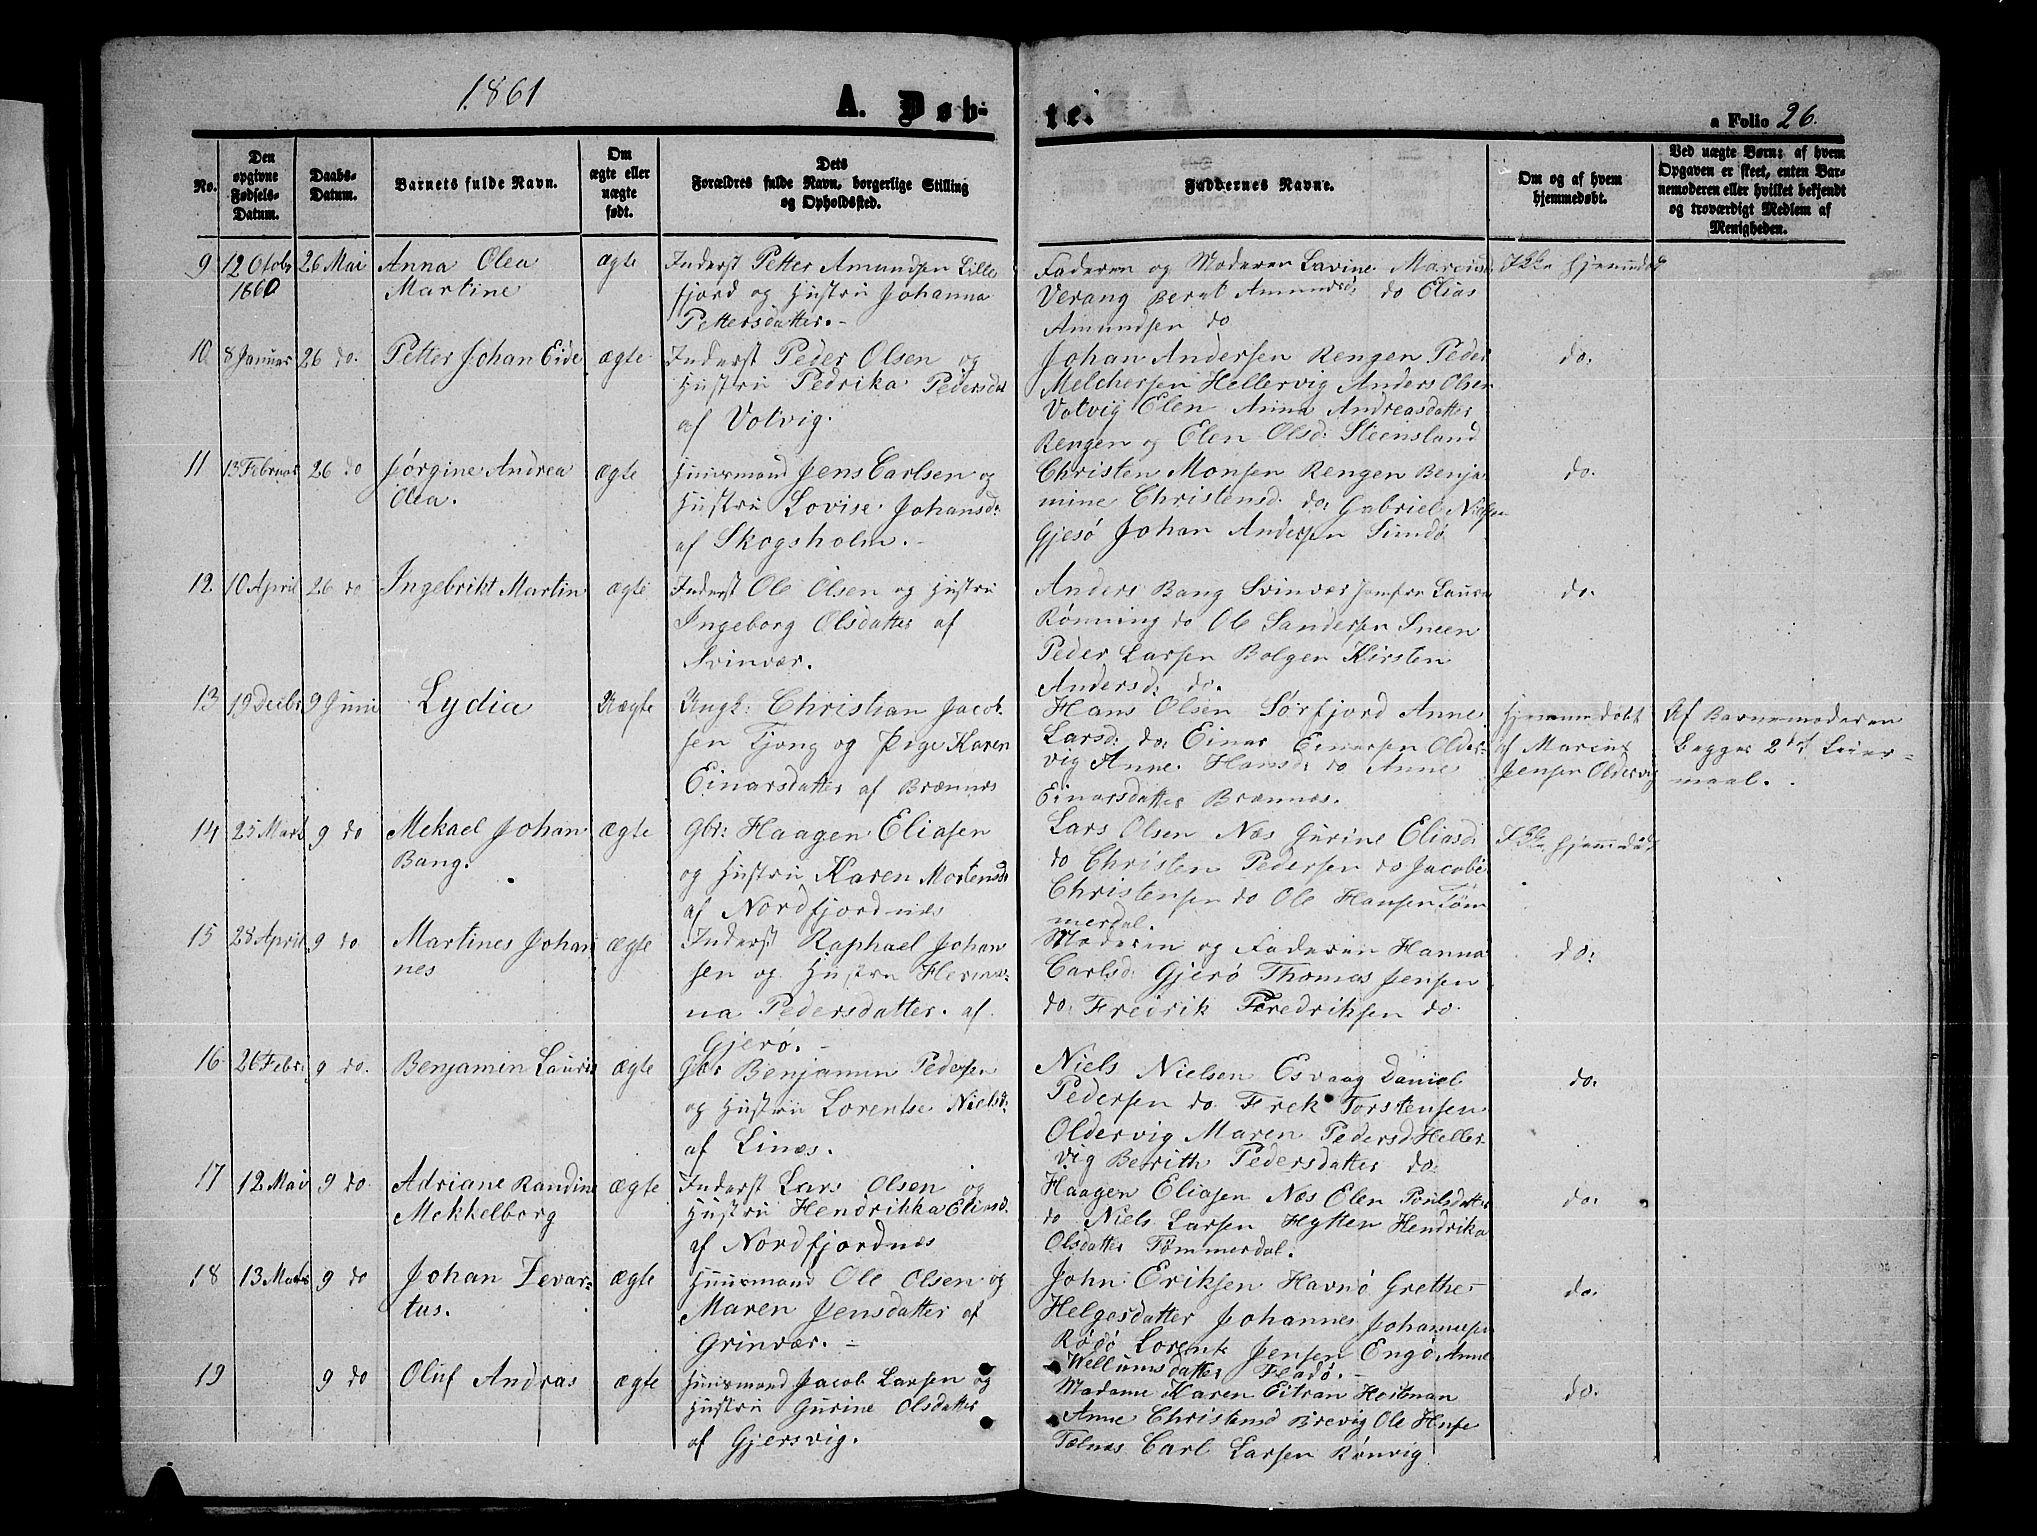 1861
A. Døb-
te.
a Folio 26.
No.
Den opgivne Fødsels-Datum.
Daabs-Datum.
Barnets fulde Navn.
Om ægte eller uægte født.
Dets Forældres fulde Navn, borgerlige Stilling og Opholdssted.
Faddernes Navne.
Om og af hvem hjemmedøbt.
Ved uægte Børn: af hvem Opgaven er skeet, enten Barnemoderen eller hvilket bekjendt og troværdigt Medlem af Menigheden.
9 12 Octobr 1860 26 Mai
Anna Olea
Martine
ægte
Inderst Petter Amundsen Lille
fjord og Hustru Johanna
Pettersdatter.
Faderen og Moderen Lavine
Verang Berat Amundsd. do Elias
Amundsen do
Ikke hjemmedøbt
10 8 Januar 26 do.
Petter Johan Eide
ægte
Inderst Peder Olsen og
Hustru Pedrika Pedersdat
af Votvig.
Johan Andersen Rengen Peder
Melchersen Hellervig Anders Olsen
Votvig Elen Anna Andreasdatter
Rengen og Elen Olsd: Steensland
do.
11 13 Februar 26 do
Jørgine Andrea
Olea.
ægte
Huusmand Jens Carlsen og
Hustru Lovise Johansd:
af Skogsholm.
Christen Monsen Rengen Benja
mine Christensd. do: Gabriel Nielsen
Gjesø Johan Andersen Sundø
do.
12 10 April 26 do
Ingebrikt Martin
ægte
Inderst Ole Olsen og Hustru
Ingeborg Olsdatter af
Svinvær.
Anders Bang Svinvær Jomfru Laura
Rønning do Ole Sandersen Sneen
Peder Larsen Bolgen Kirsten
Andersd: do.
do.
13 19 Decbr 9 Juni
Lydia
Uægte
Ungk: Christian Jacob
sen Tjong og Pige Karen
Einarsdatter af Brænnæs
Hans Olsen Sørfjord Anne
Larsd: do: Einar Einarsen Older-
vig Anne Hansd: do Anne
Einarsdatter Brænnæs.
Hjemmedøbt
af Marius
Jensen Oldervig
Af Barnemoderen
begges 2det Leier-
maal.
14 25 Mart 9 do
Mekael Johan
Bang.
ægte
Gbr: Haagen Eliasen
og Hustru Karen Mortensd
af Nordfjordnæs
Lars Olsen Næs Gurine Eliasd:
do Christen Pedersen do Jacobe
Christensen do Ole Hansen Tøm
merdal.
Ikke hjemmedøbt
15 28 April 9 do
Martines Johan
nes
ægte
Inderst Raphael Johan
sen og Hustru Herma-
na Pedersdatter. af
Gjerø.
Moderen og Faderen Hanna
Carlsd: Gjerø Thomas Jensen
do: Fredrik Fredriksen do
do:
16 26 Febr: 9 do.
Benjamin Lauris
ægte
Gbr Benjamin Pedersen
og Hustru Lorentse Nielsd:
af Linæs.
Niels Nielsen Esvaag Daniel
Pedersen do. Frek Torstensen
Oldervig Maren Pedersd Heller-
vig Berith Pedersdatter do.
do:
17 12 Mai 9 do.
Adriane Randine
Mekkelborg
ægte
Inderst Lars Olsen og
Hustru Hendrikka Eliasd.
af Nordfjordnæs
Haagen Eliasen Næs Elen Poulsdatter
do Niels Larsen Hytten Hendrika
Olsdatter Tømmerdal.
do:
18 13 Marts 9 do
Johan Zevar-
tus.
ægte
Huusmand Ole Olsen og
Maren Jensdatter af
Grinvær.
John Eriksen Havnø Grethe
Helgesdatter Johannes Johannesen
Rødø Lorents Jensen Engø Anne
Wellumsdatter Fladø.
do.
19 9 do
Oluf Andras
ægte
Huusmand Jacob Larsen og
Hustru Gurine Olsdatter
af Gjersvig.
Madame Karen Eitran
Anne Christensd Brevig Ole
Tælnæs Carl Larsen Rønvig
do.